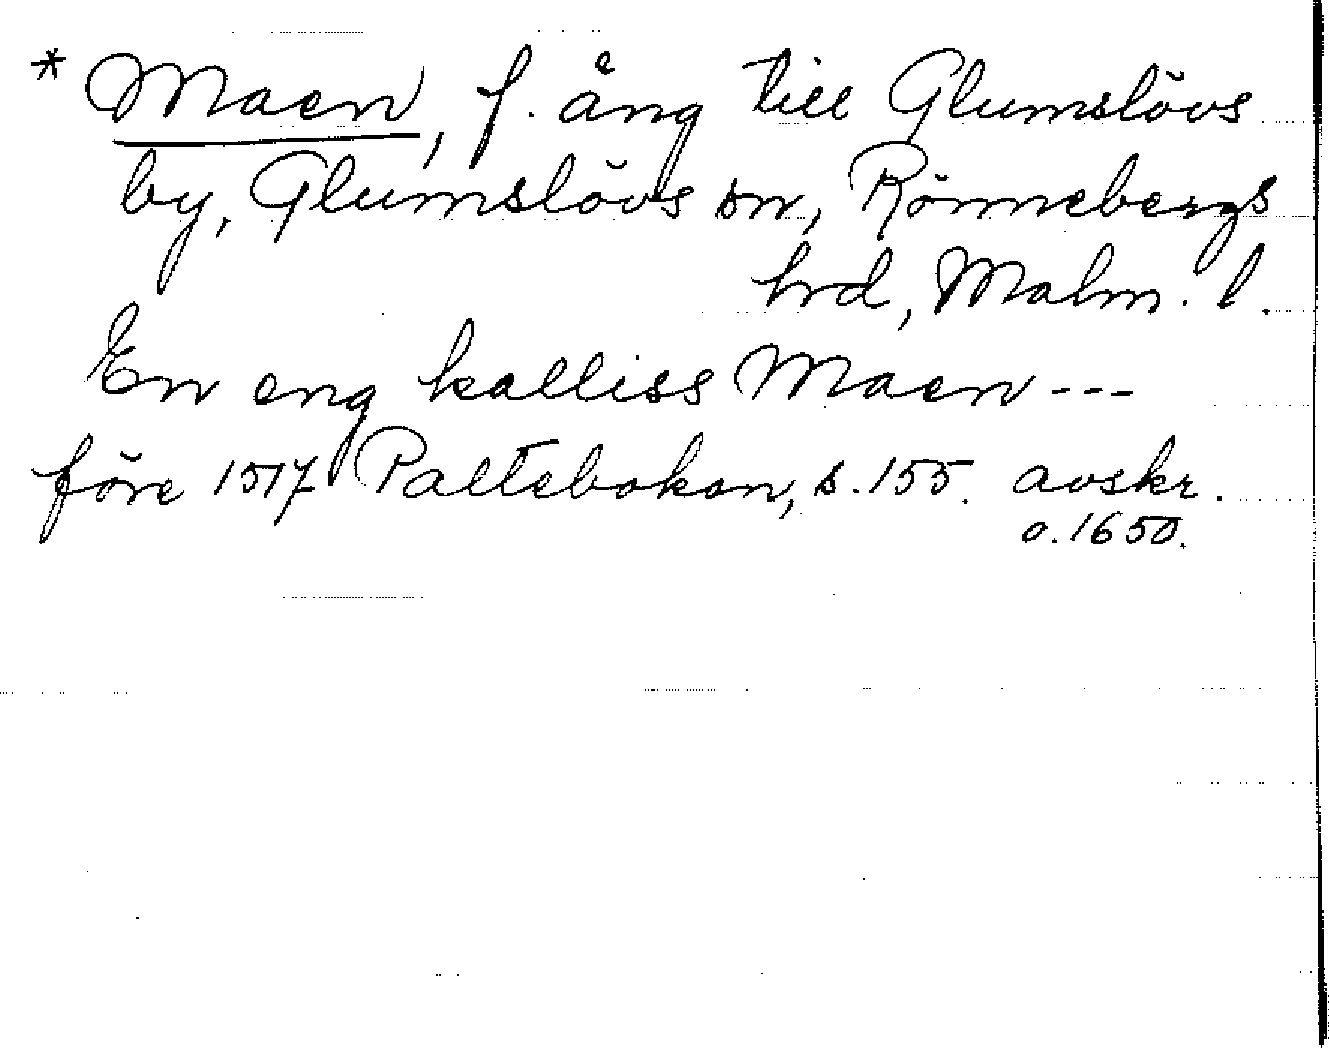 * Maen, f. äng till Glumslövs
by, Glumslövs sn, Rönnebergs
hrd, Malm. l.
En eng kalliss Maen ---
före 1517 Paltebokon, s. 155. avskr.
o. 1650.